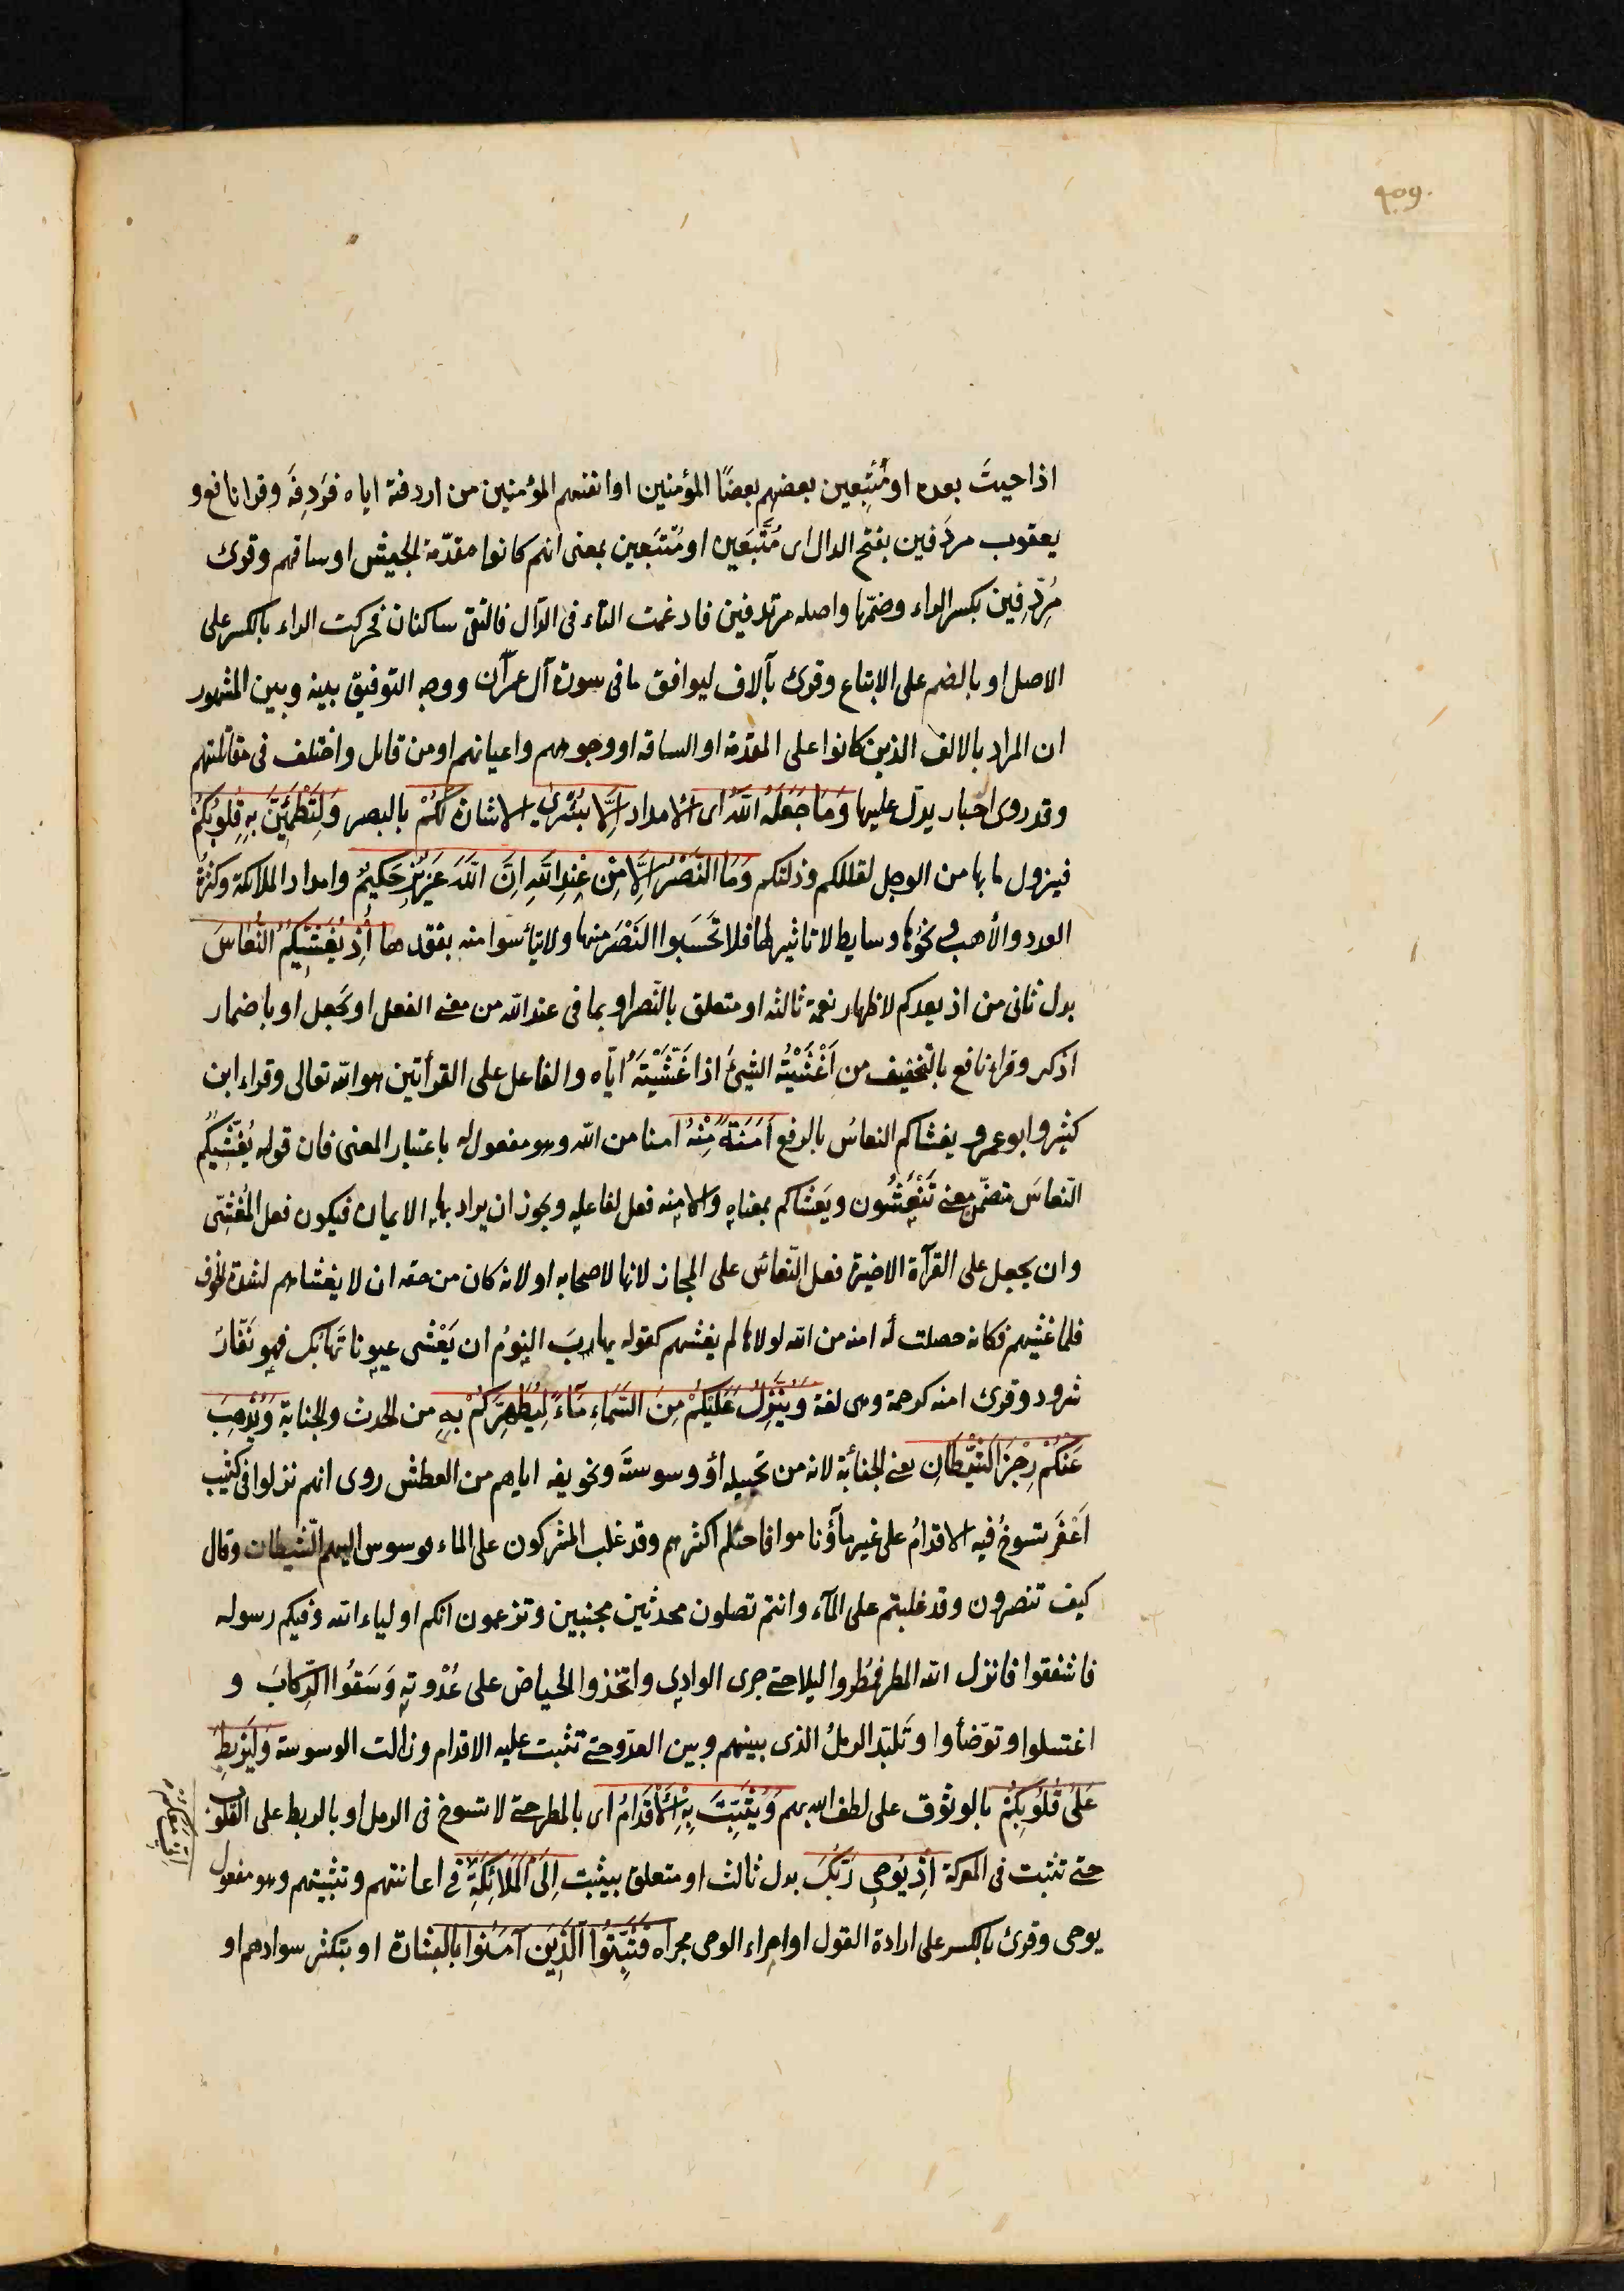 409.
اذا حيثَ بعده او مُتبِعين بعضهم بعضًا المؤمنين او انفسهم المؤمنين من اردفته اياه فرَدِفَه وقرا نافع و
يعقوب مردَفين بفتح الدال اى مُتَّبَعين او مُتْبَعين بمعنى انهم كانوا مقدّمة الجيش او ساقتهم وقرى
مُرِدِّفِين بكسر الراء وضمّها واصله مرتدفين فادغمت التاء فى الدال فالتقى ساكنان فحركت الراء بالكسر على
الاصل او بالضم على الاتباع وقرى بآلاف ليوافق ما فى سورة آل عمرآن ووجه التوفيق بينه وبين المشهور
ان المراد بالالف الذين كانوا على المقدّمة او الساقه او وجوههم واعيانهم او من قاتل واختلف فى مقاتلتهم
وقد روى اخبار يدلّ عليها وَمَا جَعَلَهُ اللّٰهُ اى الامداد اِلَّا بُشْرىٰ الا بشارة لَكُمْ بالبصر وَلِتَطْمَئِنَّ بِهِ قُلُوبُكُمْ
فيزول ما بها من الوجل لقلتكم وذلتكم وَمَا النَّصْرُ اِلَّا مِنْ عِنْدِ اللّٰهِ اِنَّ اللّٰهَ عَزِيزٌ حَكِيمٌ وامداد الملائكة وكثرة
العدد والأهب ونحوُها وسايط لا تاثير لها فلا تحسَبوا النَصْرَ منها ولا تيأسوا منه بفقدها اِذْ يُغَشِّيكُمُ النُّعَاسَ
بدل ثانى من اذ يعدكم لاظهار نعمة ثالثه او متعلق بالنّصر او بما فى عند الله من معنى الفعل او بجعل او باضمار
اذكر وقراء نافع بالتخفيف من اَغْشَيْتُه الشيئَ اذا غَشَّيْتَهُ ايّاه والفاعل على القرأتين هو الله تعالى وقراء ابن
كثير وابو عمرو يغشاكم النعاسُ بالرفع اَمَنَةً مِنْهُ امنا من الله وهو مفعول له باعتبار المعنى فان قوله يُغَشِّيكُم
النّعاسَ متضمّن معنى تَنْعِسُون ويَغشاكم بمعناه والامنه فعل لفاعله ويجوز ان يراد بها الايمان فيكون فعل المُغَشّى
وان يجعل على القرآة الاخيرة فعل النّعاس على المجاز لانها لاصحابه او لانه كان من حقه ان لا يغشاهم لشدة الخوف
فلما غشيهم فكانه حصلت له امنه من الله لولاها لم يغشهم كقوله يهاب النومُ ان يَغْشى عيونا تَهابُك فهو نَفّارٌ
شرود وقرى امنه كرحمة وهى لغة وَيُنَزِّلُ عَلَيْكُمْ مِنَ السَّمَاءِ مَاءً لِيُطَهِّرَكُمْ بِهِ من الحدث والجنابة وَيُذْهِبَ
عَنْكُمْ رِجْزَ الشَّيْطَانِ يعنى الجنابة لانه من تخييله أو وسوسته وتخويفه اياهم من العطش روى انهم نزلوا فى كثيب
اَعْفَر تسوخُ فيه الاقدامُ على غير مآءٍ ونا موا فاحتلم اكثرهم وقد غلب المشركون على الماء فوسوس اليهم الشيطان وقال
كيف تنصرون وقد غلبتم على المآء وانتم تصلون محدثين مجنبين وتزعمون انكم اولياء الله وفيكم رسوله
فاشفقوا فانزل الله المطر فمُطِروا ليلا حتى جرى الوادى واتخذوا الحياض على عُدْوَتِهِ وَسَقَوُا الرِّكابَ و
اغتسلوا وتوّضأوا وتَلبّد الرملُ الذى بينهم وبين العدّو حتى تثبت عليه الاقدام وزالت الوسوسة وَلِيَرْبِطَ
عَلَى قُلُوبِكُمْ بالوثوق على لطف الله بهم وَيُثَبِّتَ بِهِ الْأَقْدَامَ اى بالمطر حتى لا تسوخ فى الرمل او بالربط على القلوب
حتى تثبت فى المعركة اِذْ يُوحِى رَبُّكَ بدل ثالث او متعلق بيثبت اِلَى الْمَلَائِكَةِ فى اعانتهم وتثبيتهم وهو مفعول
يوحى وقرئ بالكسر على ارادة القول او اجراء الوحى مجراه فَثَبِّتُوا الَّذِينَ آمَنُوا بالبشارة او بتكثير سوادهم او